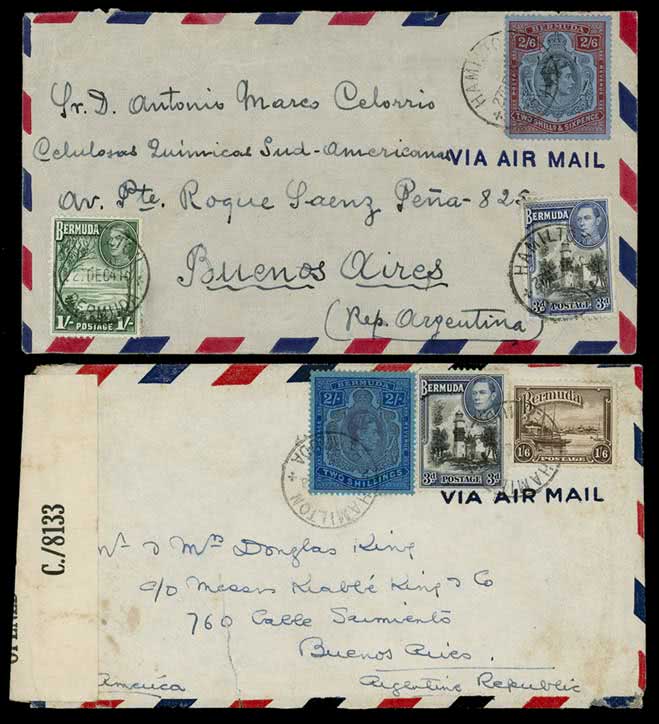 BERMUDA
2/6 2/6
POSTAGE REVENUE
TWO SHILLS & SIXPENCE
HAMILTON
Sr. D. Antonio Marco Celorrio
Celulosas Químicas Sud-Americanas
VIA AIR MAIL
Av. Pte. Roque Saenz Peña - 825
Buenos Aires
(Rep. Argentina)
BERMUDA
1/- POSTAGE 1/-
27 DE 04 10
BERMUDA
BERMUDA
3d POSTAGE 3d
HAMILTON
BERMUDA
2/- 2/-
TWO SHILLINGS
BERMUDA
3d POSTAGE 3d
BERMUDA
1/6 POSTAGE 1/6
HAMILTON
HAMILTON
VIA AIR MAIL
C./8133
OPENED
Mr & Mrs Douglas King
c/o Messrs Krabbé King & Co
760 Calle Sarmiento
Buenos Aires.
America Argentine Republic